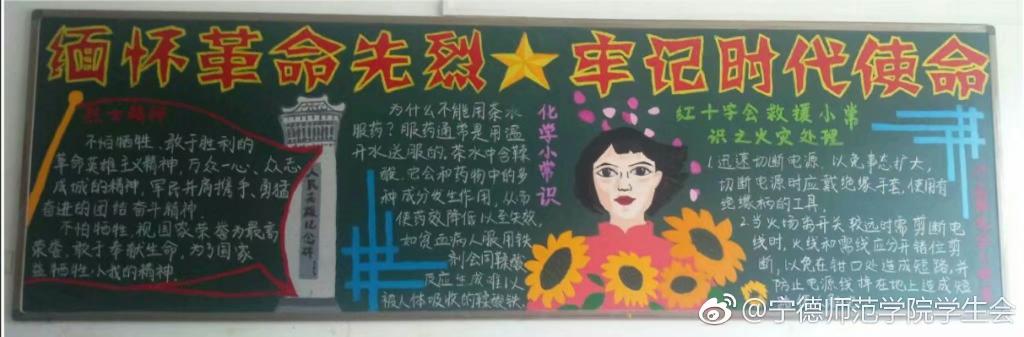 缅怀革命先烈★牢记时代使命
烈士精神
不怕牺牲、敢于胜利的
革命英雄主义精神,万众一心、众志
成城的精神,军民并肩携手、勇猛
奋进的团结奋斗精神
不怕牺牲,视国家荣誉为最高
荣誉,敢于奉献生命,为了国家
益牺牲小我的精神.
人民英雄纪念碑
为什么不能用茶水
服药?服药通常是用温
开水送服的.茶水中含鞣
酸,它会和药物中的多
种成分发生作用,从而
使药效降低以至失效,
如贫血病人服用铁
剂会同鞣酸
反应生成难以
被人体吸收的鞣酸铁.
化学小常识
红十字会救援小常
识之火灾处理
1.迅速切断电源,以免事态扩大,
切断电源时应戴绝缘手套,使用有
绝缘柄的工具.
2.当火场离开关较远时需剪断电
线时,火线和零线应分开错位剪
断,以免在钳口处造成短路,并
防止电源线掉在地上造成短
@宁德师范学院学生会